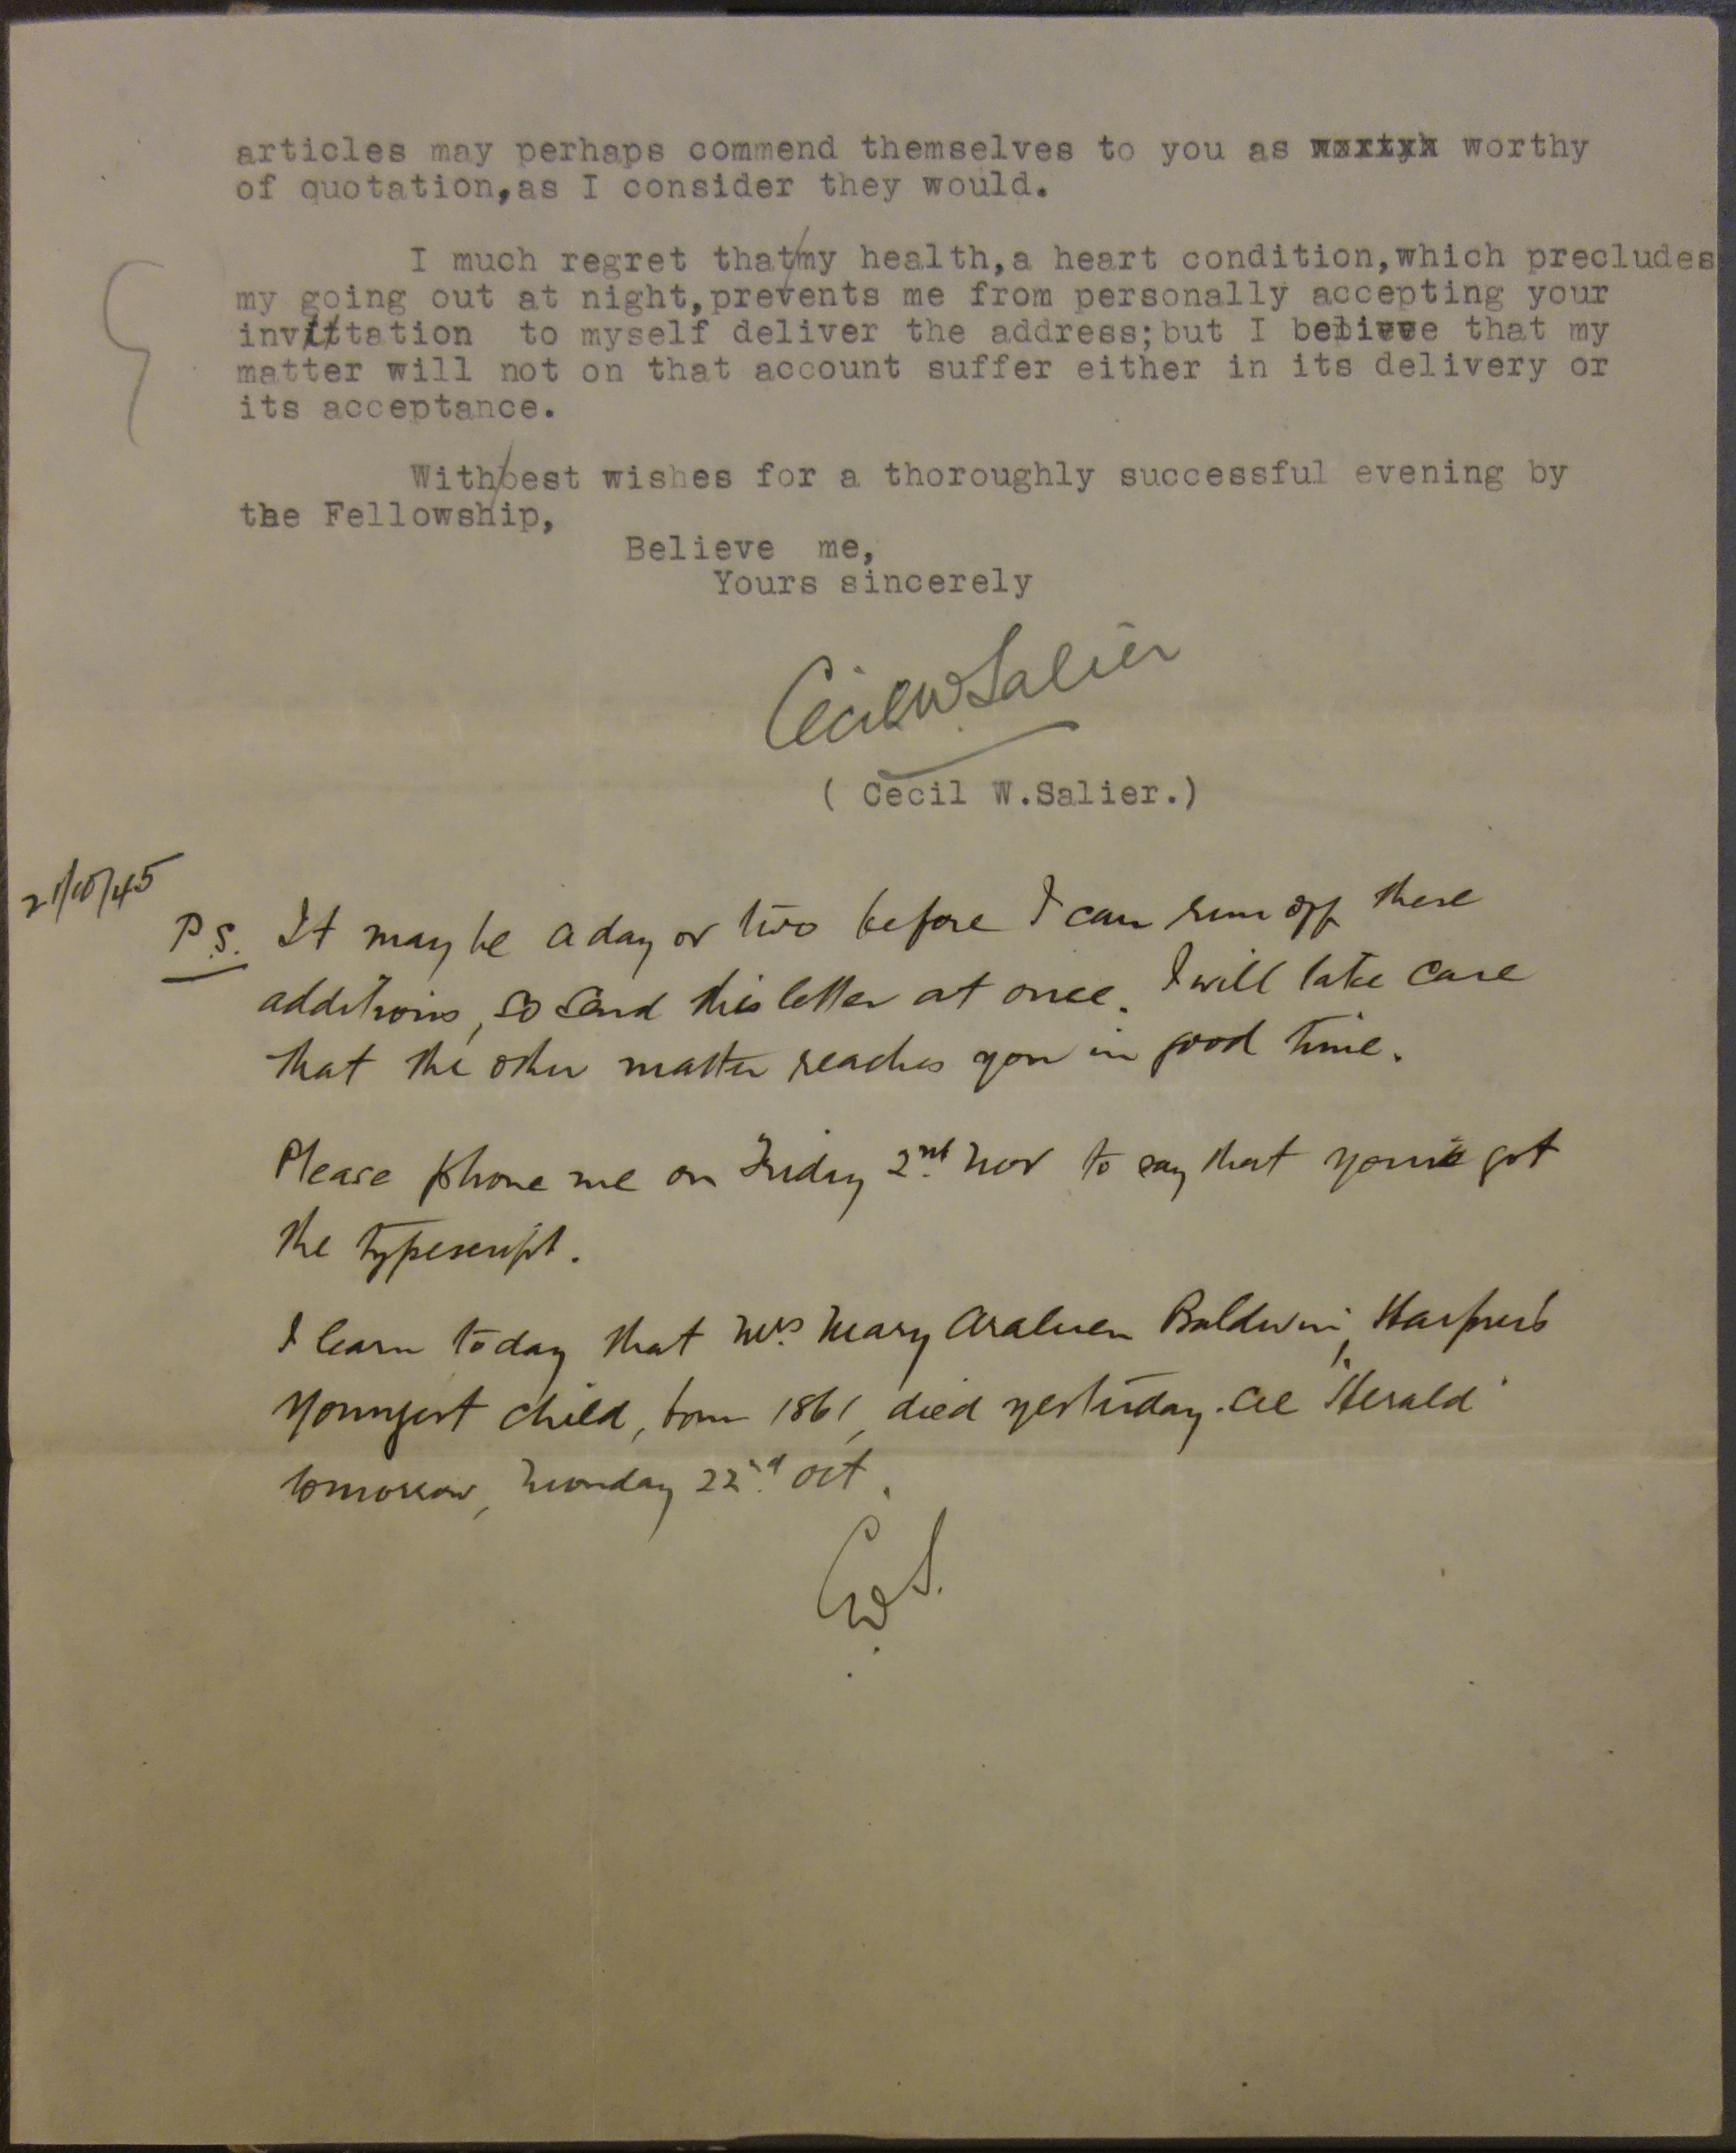 articles may perhaps commend themselves to you as worthy
of quotation,as I consider they would.
I much regret that/my health,a heart condition,which precludes
my going out at night,prevents me from personally accepting your
invitation to myself deliver the address;but I believe that my
matter will not on that account suffer either in its delivery or
its acceptance.
With/best wishes for a thoroughly successful evening by
the Fellowship,
Believe me,
Yours sincerely
Cecil W Salier
( Cecil W.Salier.)
21/10/45
P.S. It may be a day or two before I can run off these
additions, so send this letter at once. I will take care
that the other matter reaches you in good time.
Please phone me on Friday 2nd Nov to say that you've got
the typescript.
I learn today that Mrs. Mary Araluen Baldwin, Harpur's
youngest child, born 1861, died yesterday. "Herald"
tomorrow, Monday 22nd Oct.
CWS.